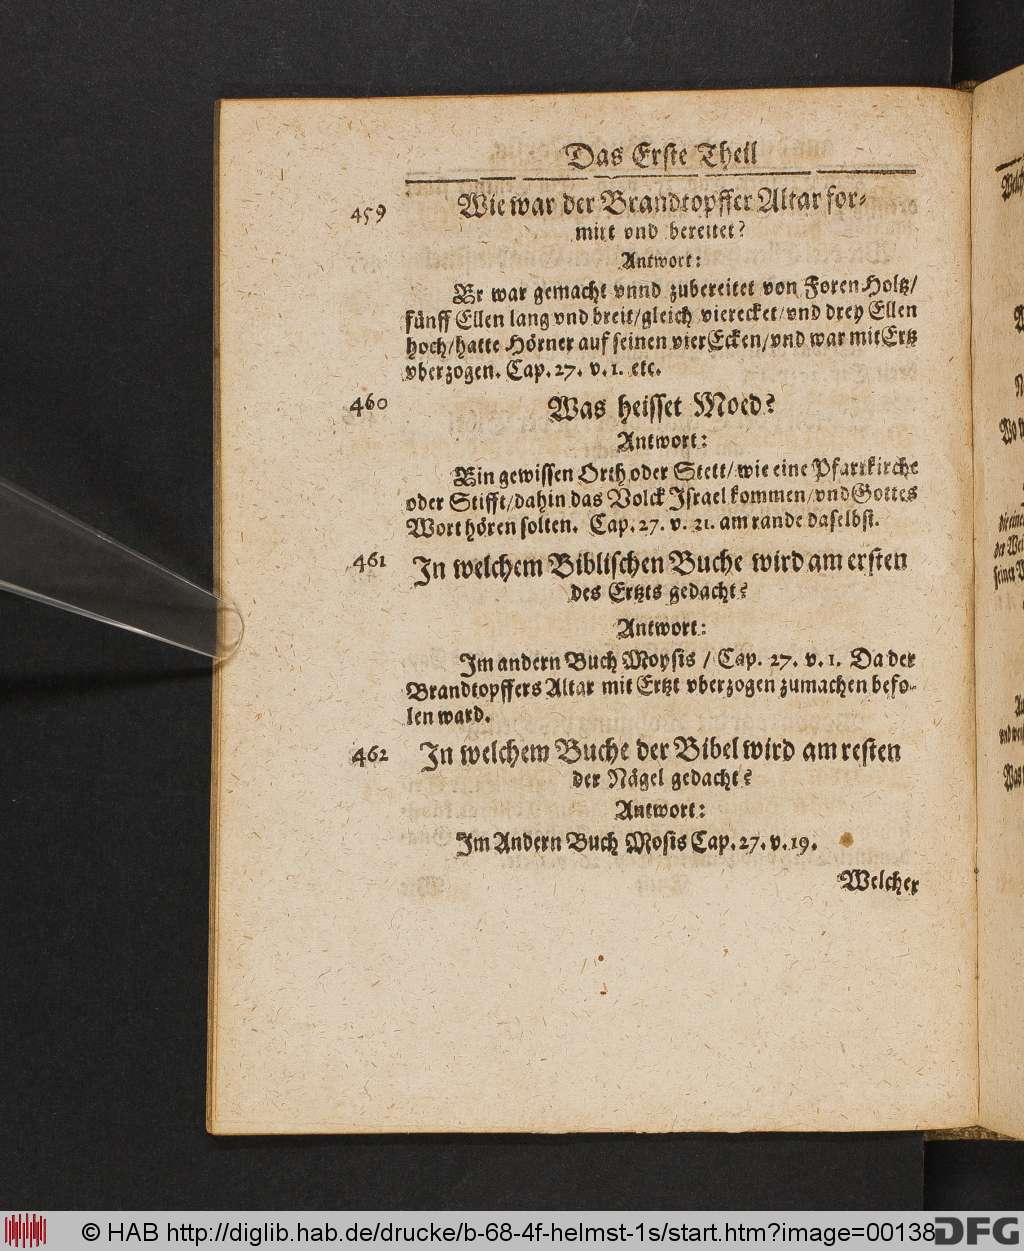 Das Erste Theil
459 Wie war der Brandtopffer Altar for-
mirt vnd bereitet?
Antwort:
Er war gemacht vnnd zubereitet von Foren Holtz/
fünff Ellen lang vnd breit/gleich vierecket/vnd drey Ellen
hoch/hatte Hörner auf seinen vier Ecken/vnd war mit Ertz
vberzogen. Cap. 27. v. 1. etc.
460 Was heisset Moed?
Antwort:
Ein gewissen Orth oder Stett/wie eine Pfarrkirche
oder Stifft/dahin das Volck Israel kommen/vnd Gottes
Wort hören solten. Cap. 27. v. 21. am rande daselbst.
461 In welchem Biblischen Buche wird am ersten
des Ertzts gedacht?
Antwort:
Im andern Buch Moysis / Cap. 27. v. 1. Da der
Brandtopffers Altar mit Ertzt vberzogen zumachen befo-
len ward.
462 In welchem Buche der Bibel wird am resten
der Nägel gedacht?
Antwort:
Im Andern Buch Mosis Cap. 27. v. 19.
Welcher
© HAB http://diglib.hab.de/drucke/b-68-4f-helmst-1s/start.htm?image=00138
DFG